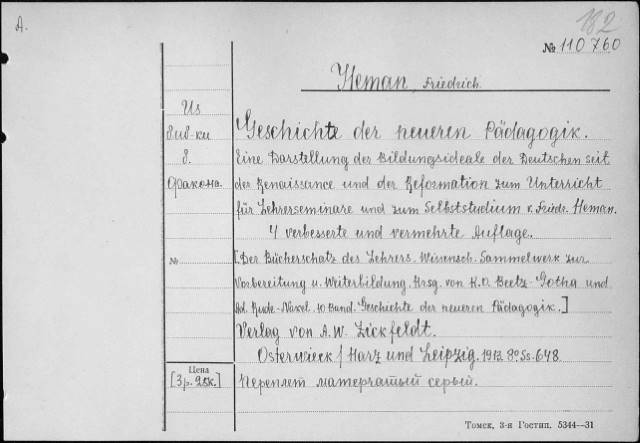 A.
182
№ 110760
Heman, Friedrich.
Из
биб-ки
в.
Факона.
Geschichte der neueren Pädagogik.
Eine Darstellung der Bildungsideale der Deutschen seit
der Renaissance und der Reformation zum Unterricht
für Lehrerseminare und zum Selbststudium v. Friedr. Heman.
4 verbesserte und vermehrte Auflage.
№
[Der Bücherschatz des Lehrers. Wissensch. Sammelwerk zur
Vorbereitung u. Weiterbildung. Hrsg. von K.O. Beetz-Gotha und
Ad. Rude-Nakel. 10 Band. Geschichte der neueren Pädagogik.]
Verlag von A.W. Zickfeldt.
Osterwieck / Harz und Leipzig. 1913. 8º Ss. 648.
Цена
[3р. 25к.]
Переплет матерчатый серый.
Томск, 3-я Гостип. 5344—31